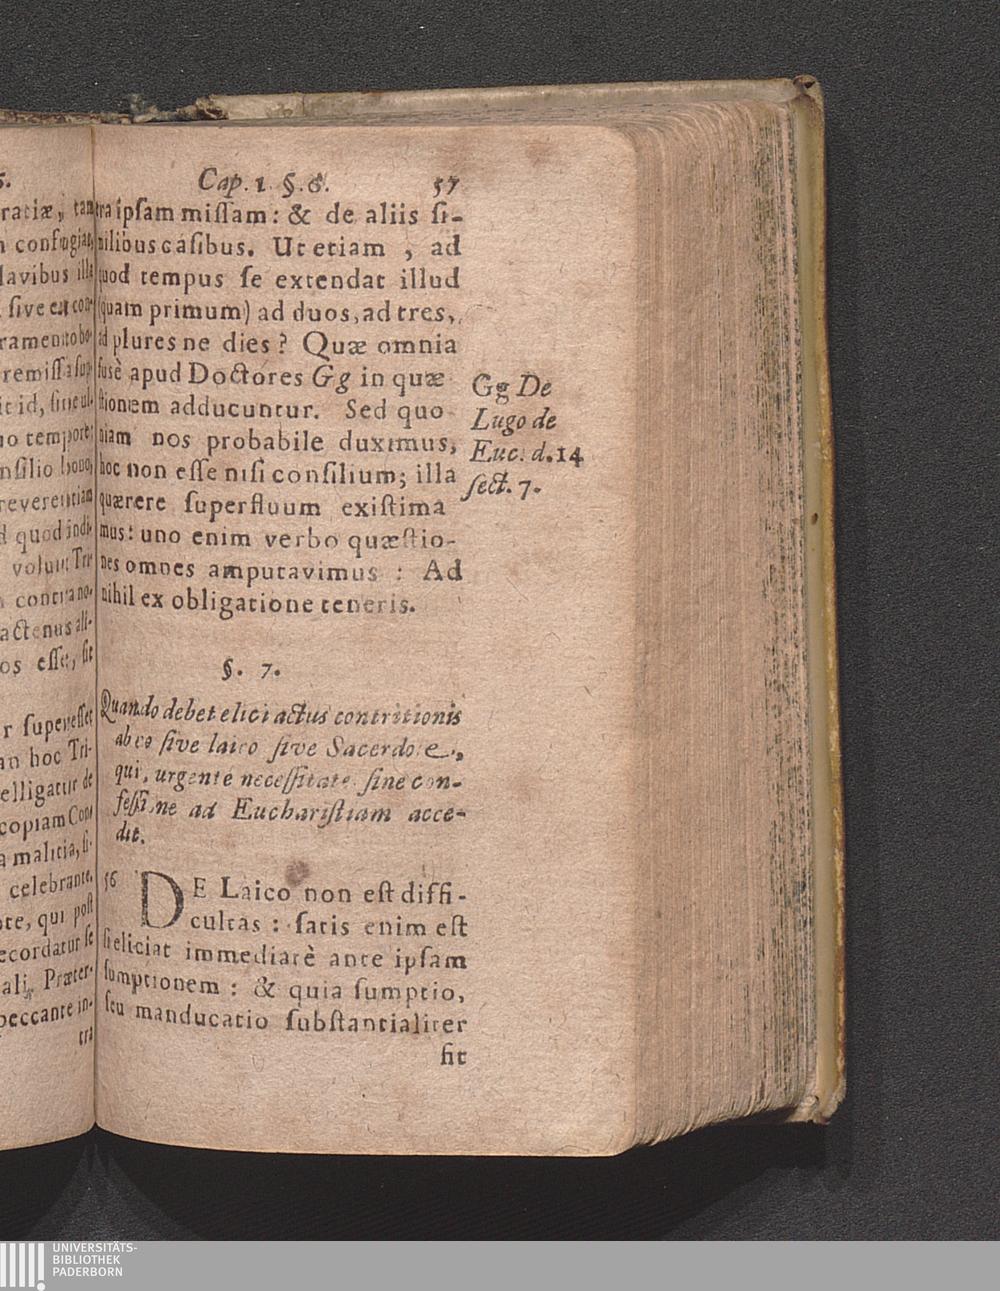 5.
ratiæ, tam
confugiat,
lavibus illa
sive ex con-
ramento bo-
remissa sup-
it id, sine ul-
no tempore:
nsilio bono,
reverentiam
d quod indi-
volunt Tri-
contra no-
actenus all-
os esse, sit
r superesset
an hoc Tri-
elligatur de
copiam Con
a malitia, si-
celebrante,
ote, qui post
ecordatur se
ali. Præter-
peccante in-
tra
Cap. 1 §. 6. 57
tra ipsam missam: & de aliis si-
milibus casibus. Ut etiam, ad
quod tempus se extendat illud
(quam primum) ad duos, ad tres,
ad plures ne dies? Quæ omnia
fusè apud Doctores Gg in quæ
stionem adducuntur. Sed quo
niam nos probabile duximus,
hoc non esse nisi consilium; illa
quærere superfluum existima
mus: uno enim verbo quæstio-
nes omnes amputavimus: Ad
nihil ex obligatione teneris.
Gg De
Lugo de
Euc. d. 14
sect. 7.
§. 7.
Quando debet elici actus contritionis
ab eo sive laico sive Sacerdote,
qui, urgente necessitate sine con-
fessione ad Eucharistiam acce-
dit.
56 DE Laico non est diffi-
cultas: satis enim est
si eliciat immediatè ante ipsam
sumptionem: & quia sumptio,
seu manducatio substantialiter
fit
UNIVERSITÄTS-
BIBLIOTHEK
PADERBORN